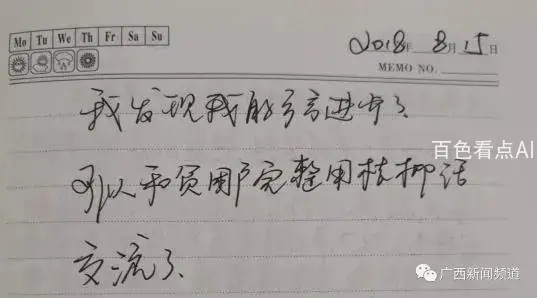 Mo Tu We Th Fr Sa Su
2018年 8月15日
MEMO NO.
我发现我的方言进步了
百色看点AI
可以和贫困户完整用桂柳话
交流了、
广西新闻频道